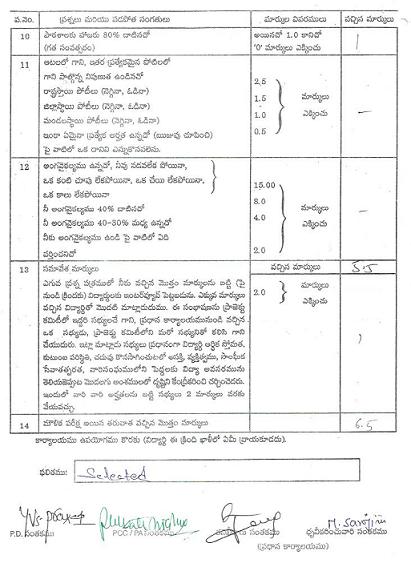 వ.నెం. ప్రశ్నలు మరియు పడపోత సంగతులు మార్కుల వివరములు వచ్చిన మార్కులు
10 పాఠశాలకు హాజరు 80% దాటినదో అయినదో 1.0 కానిదో 1
(గత సంవత్సరం) '0' మార్కులు ఎక్కించు
11 ఆటలలో గాని, ఇతర ప్రత్యేకమైన పోటీలలో
గాని పాల్గొన్న నిపుణత ఉండినచో 2.5
రాష్ట్రస్థాయి పోటీలు (నెగ్గినా, ఓడినా) 1.5 మార్కులు
జిల్లాస్థాయి పోటీలు (నెగ్గినా, ఓడినా) 1.0 ఎక్కించు
మండలస్థాయి పోటీలు (నెగ్గినా, ఓడినా) 0.5
ఇంకా ఏమైనా ప్రత్యేక అర్హత ఉన్నదో (ఋజువు చూపించి)
పై వాటిలో ఒక దానిని ఎన్నుకొనవలెను.
12 అంగవైకల్యము ఉన్నదో, నీవు నడవలేక పోయినా,
ఒక కంటి చూపు లేకపోయినా, ఒక చేయి లేకపోయినా, 15.00
ఒక కాలు లేకపోయినా 8.0 మార్కులు
నీ అంగవైకల్యము 40% దాటినదో 4.0 ఎక్కించు
నీ అంగవైకల్యము 40-30% మధ్య ఉన్నదో
నీకు అంగవైకల్యము ఉండి పై వాటిలో ఏది 2.0
వర్తించనిదో
13 సమావేశ మార్కులు వచ్చిన మార్కులు 5.5
ఎగువ ప్రశ్న పత్రములో నీకు వచ్చిన మొత్తం మార్కులను బట్టి (పై 2.0 మార్కులు
నుండి క్రిందకు) విద్యార్థులకు ఇంటర్వ్యూకి పెట్టబడును. ఎక్కువ మార్కులు ఎక్కించు
వచ్చిన విద్యార్థితో మొదట మాట్లాడుదుము. ఈ సంభాషణను ప్రాజెక్టు
కమిటీలో ఇద్దరు సభ్యులచే గాని, ప్రధాన కార్యాలయమునుండి వచ్చిన
ఒక సభ్యుడు, ప్రాజెక్టు కమిటీలోని మరో సభ్యునితో కలిసి గాని 1
చేయుదురు. ఇట్లా మాట్లాడు సభ్యులు ప్రధానంగా విద్యార్థి ఆర్థిక స్తోమత,
కుటుంబ పరిస్థితి, చదువు కొనసాగించుటలో ఆసక్తి, వ్యక్తిత్వము, సాంఘిక
సేవాతత్పరత, వారిసంఘములోని పెద్దలకు విద్యా అవసరమును
తెలియజెప్పుట మొదలగు అంశములలో దృష్టిని కేంద్రీకరించి చర్చించెదరు.
ఇందులో వారి వారి అర్హతలను బట్టి సభ్యులు 2 మార్కుల వరకు
వేయవచ్చు.
14 మౌలిక పరీక్ష అయిన తరువాత వచ్చిన మొత్తం మార్కులు 6.5
కార్యాలయము ఉపయోగము కొరకు (విద్యార్థి ఈ క్రింది ఖాళీలో ఏమీ వ్రాయకూడదు).
ఫలితము: Selected
M. Sarojini
P.D. సంతకము PCC / PA సంతకము సంతకము ధృవీకరించువారి సంతకము
(ప్రధాన కార్యాలయము)